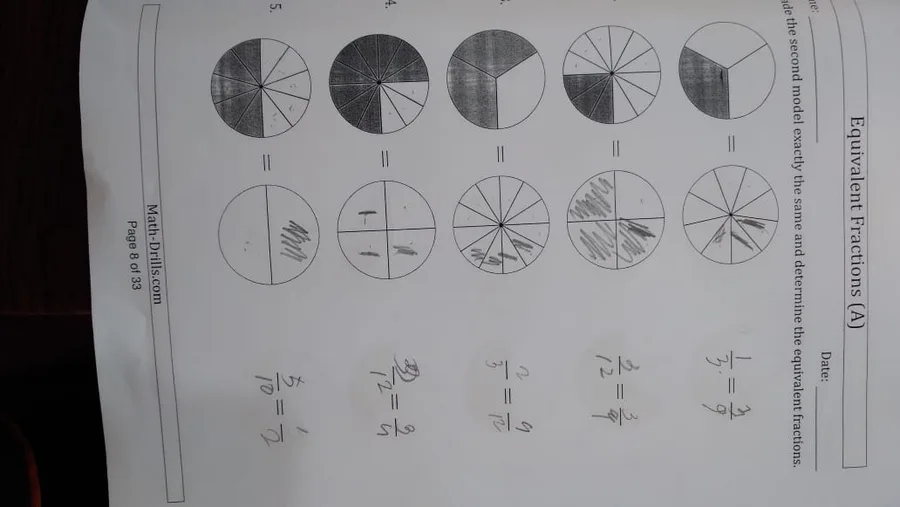 Equivalent Fractions (A)
Date:
the second model exactly the same and determine the equivalent fractions.
= 1/3 = 3/9
= 3/12 = 3/4
= 2/3 = 9/12
4. =
5. = 5/10 = 1/2
Math-Drills.com
Page 8 of 33